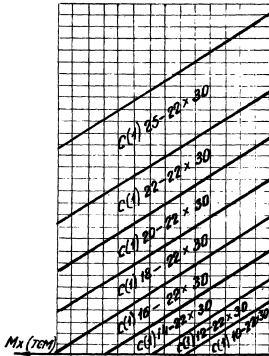 C(1) 25-22×30
C(1) 22-22×30
C(1) 20-22×30
C(1) 18-22×30
C(1) 16-22×30
C(1) 14-22×30
C(1) 12-22×30
C(1) 10-22×30
Mx (тем)